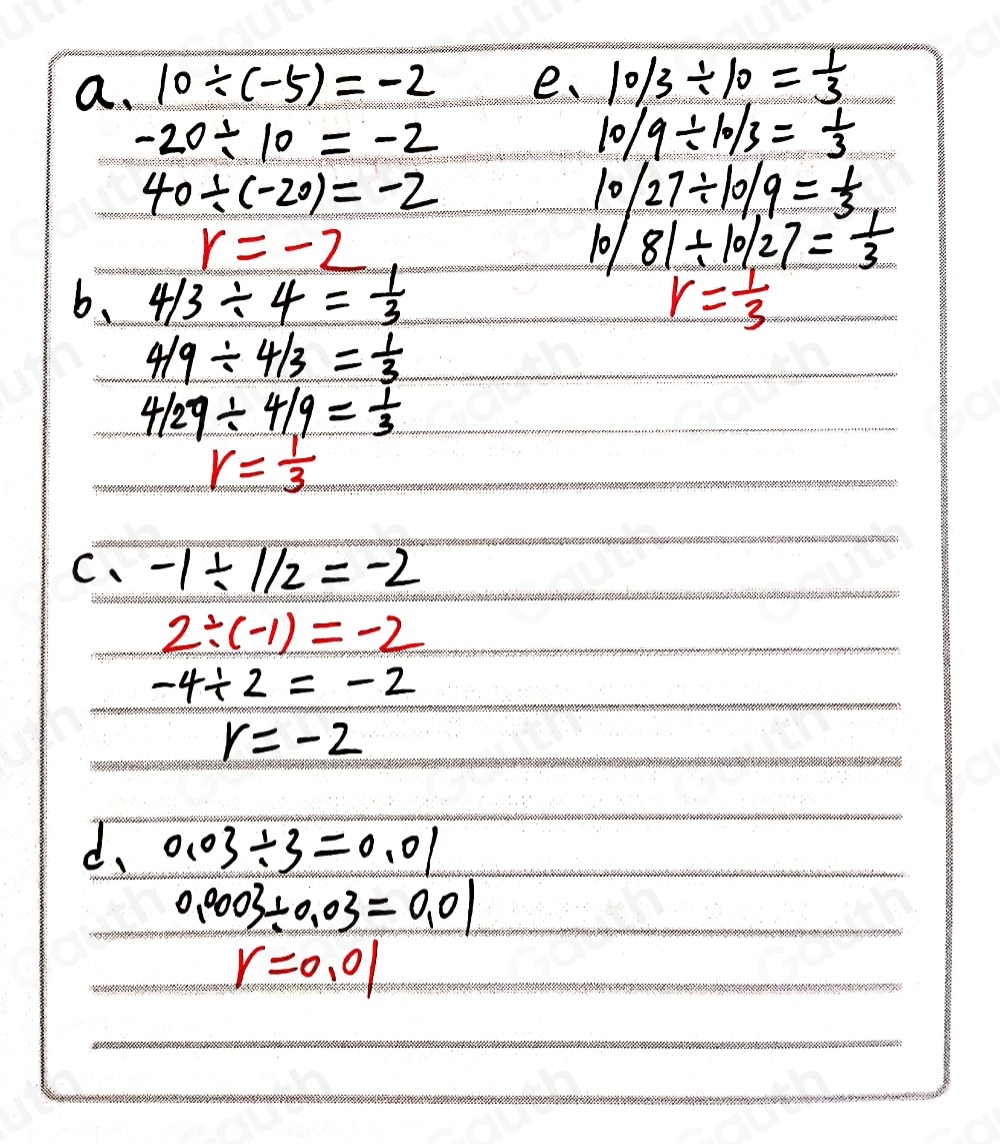 a、10÷(-5)=-2
-20÷10=-2
40÷(-20)=-2
r=-2
b、4/3÷4=1/3
4/9÷4/3=1/3
4/29÷4/9=1/3
r=1/3
c、-1÷1/2=-2
2÷(-1)=-2
-4÷2=-2
r=-2
d、0.03÷3=0.01
0.0003÷0.03=0.01
r=0.01
e、10/3÷10=1/3
10/9÷10/3=1/3
10/27÷10/9=1/3
10/81÷10/27=1/3
r=1/3
Gauth